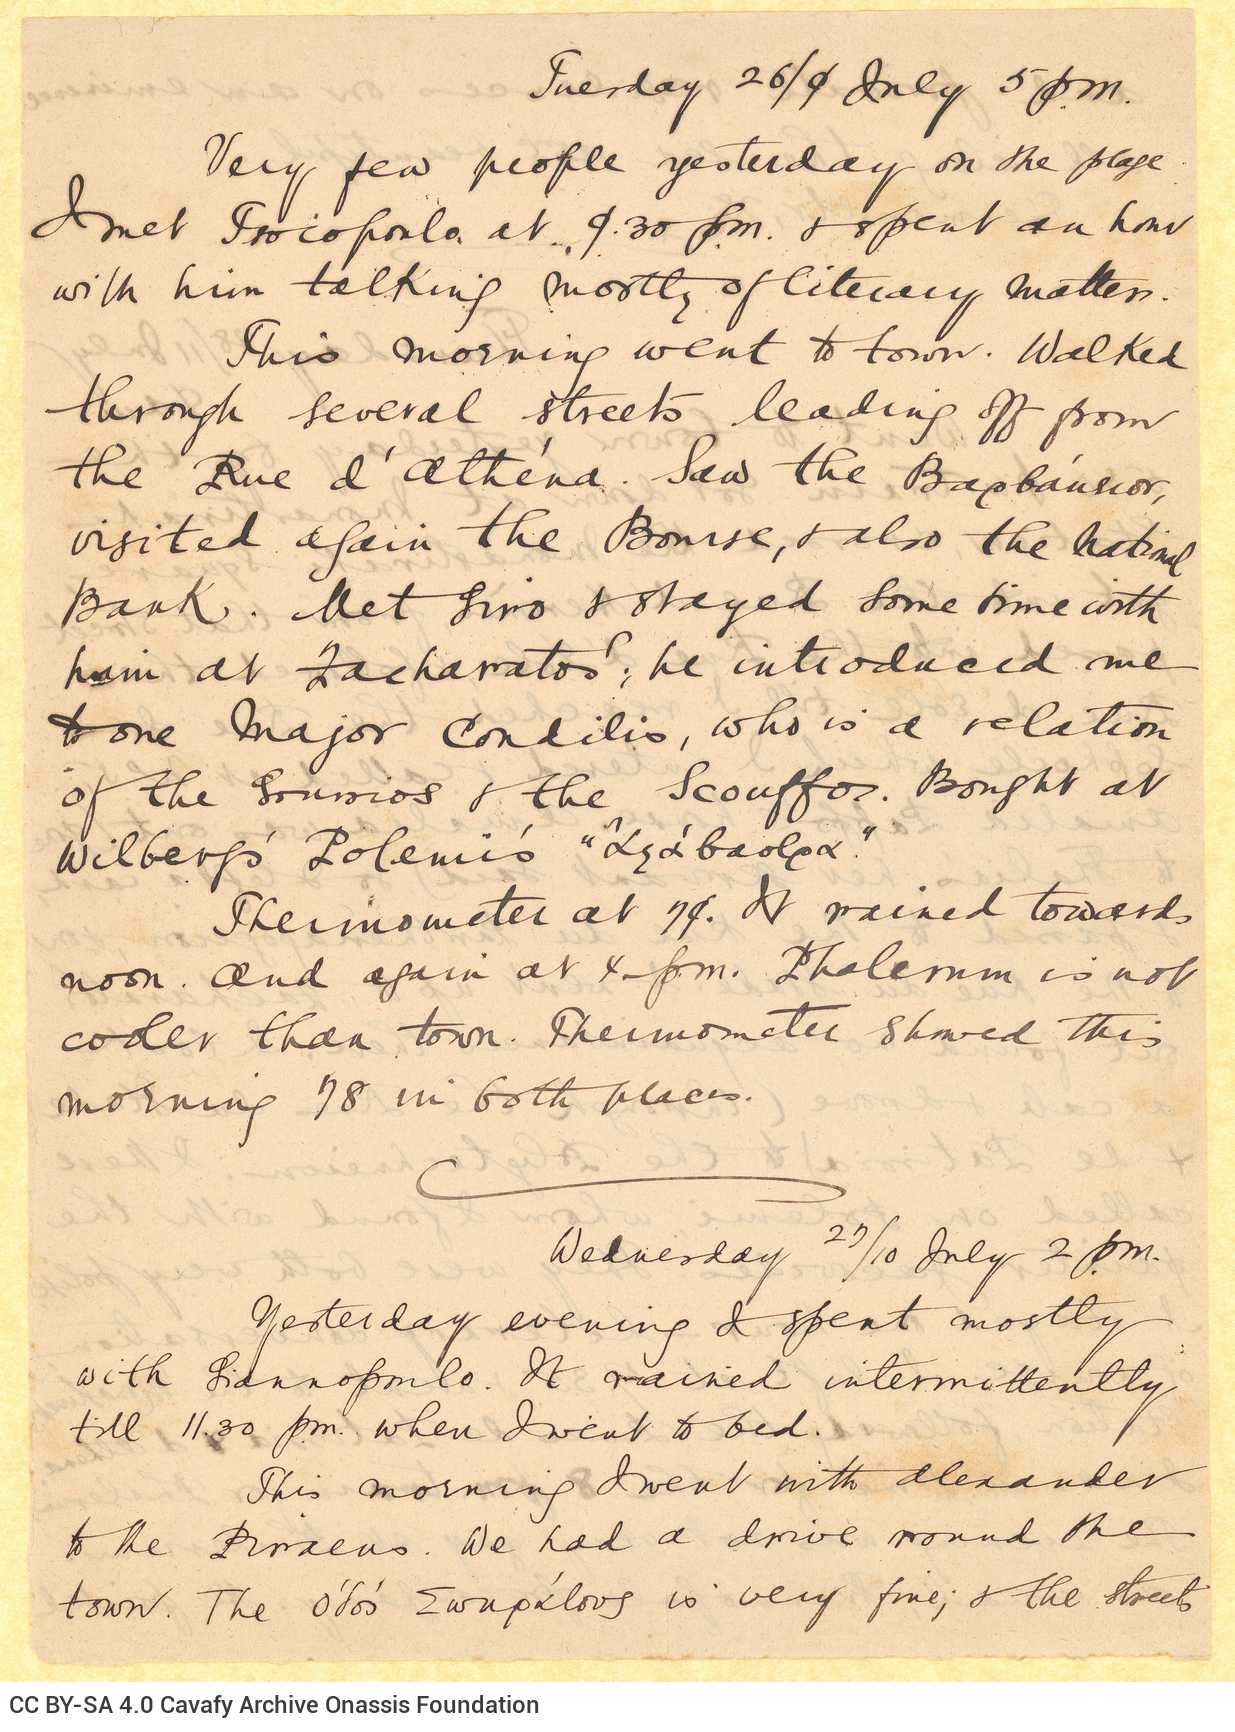 Tuesday 26/9 July 5 p.m.
Very few people yesterday on the plage.
I met Tsocopoulo. at 9.30 p.m. & spent an hour
with him talking mostly of literary matters.
This morning went to town. Walked
through several streets leading off from
the Rue d'Athéna. Saw the Βαρβάκειον,
visited again the Bourse, & also the National
Bank. Met Siro & stayed some time with
him at Zacharratos'; he introduced me
to one Major Condilis, who is a relation
of the & the Scouffos. Bought at
Wilberg's Polemi's "Ἀλάβαστρα."
Thermometer at 79. It rained towards
noon. And again at 4 p.m. Phalerum is not
cooler than town. Thermometer showed this
morning 78 in both places.
Wednesday 27/10 July 2 p.m.
Yesterday evening I spent mostly
with Giannopoulo. It rained intermittently
till 11.30 p.m. when I went to bed.
This morning I went with Alexander
to the Piraeus. We had a drive round the
town. The ὁδός Σωκράτους is very fine; & the streets
CC BY-SA 4.0 Cavafy Archive Onassis Foundation